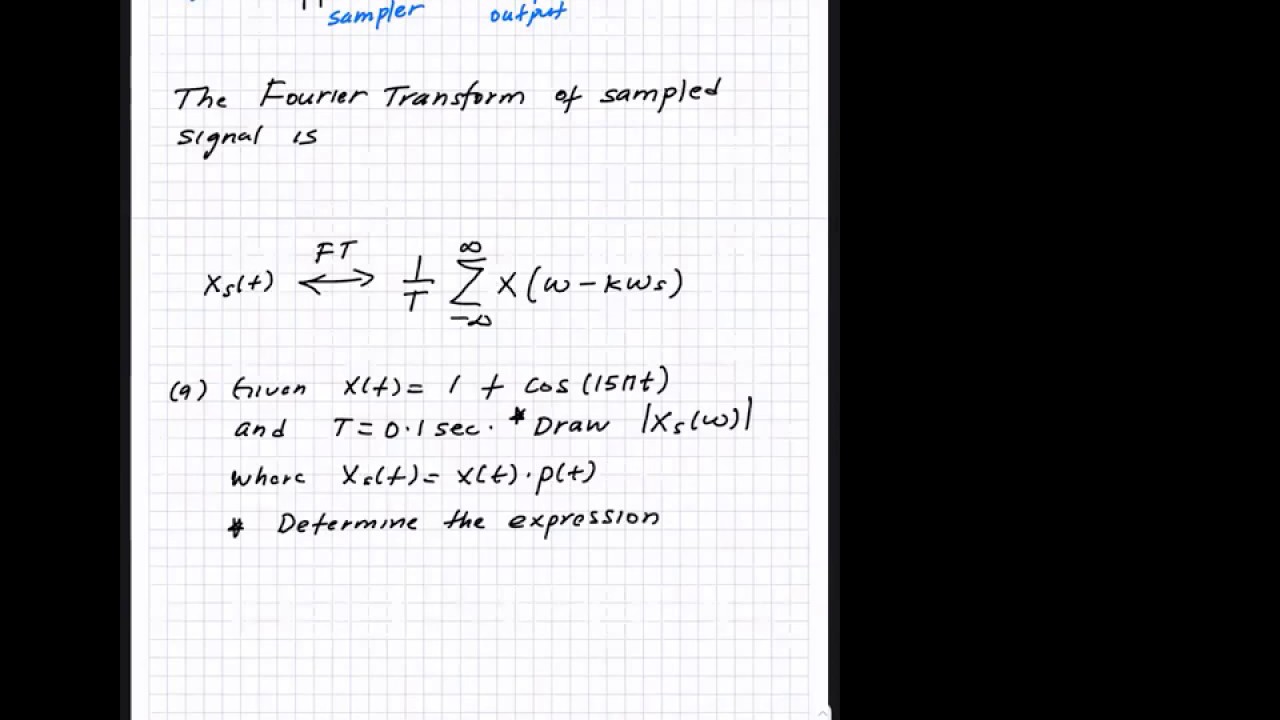 sampler output
The Fourier Transform of sampled
signal is
FT
∞
Xs(t) ⟷ 1/T Σ X(ω - kωs)
-∞
(a) Given x(t) = 1 + cos(15πt)
and T = 0.1 sec. * Draw |Xs(ω)|
where Xs(t) = x(t) · p(t)
* Determine the expression